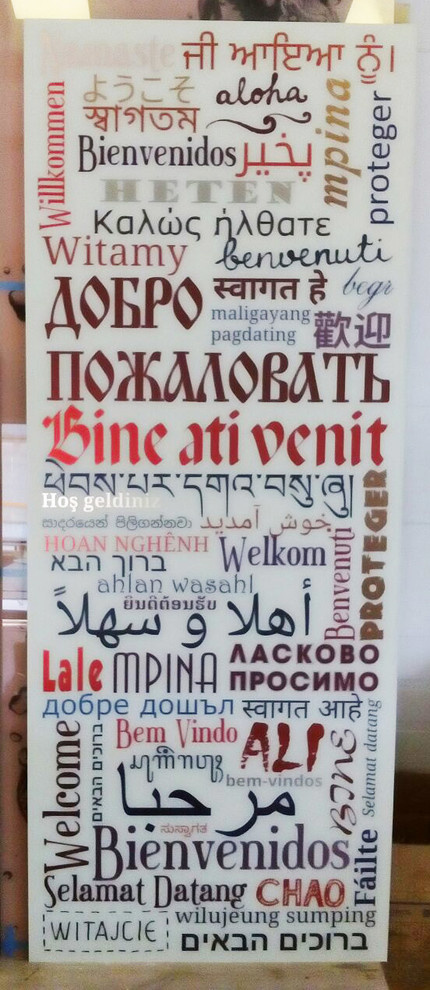 Namaste
ਜੀ ਆਇਆ ਨੂੰ।
Willkommen
ようこそ
aloha
স্বাগতম
mpina
proteger
Bienvenidos
پخیر
HETEN
Καλώς ήλθατε
Witamy
benvenuti
ДОБРО
स्वागत हे
maligayang
pagdating
歡迎
ПОЖАЛОВАТЬ
Bine ati venit
Hoş geldiniz
සාදරයෙන් පිලිගන්නවා
خوش آمدید
PROTEGER
HOAN NGHÊNH
Welkom
Benvenuti
ברוך הבא
ahlan wasahl
ยินดีต้อนรับ
أهلا و سهلاً
Lale
MPINA
ЛАСКОВО
ПРОСИМО
добре дошъл
स्वागत आहे
Welcome
ברוכים הבאים
Bem Vindo
ALI
BINE
Selamat datang
bem-vindos
مرحبا
ಸುಸ್ವಾಗತ
Bienvenidos
Fáilte
Selamat Datang
CHAO
WITAJCIE
wilujeung sumping
ברוכים הבאים